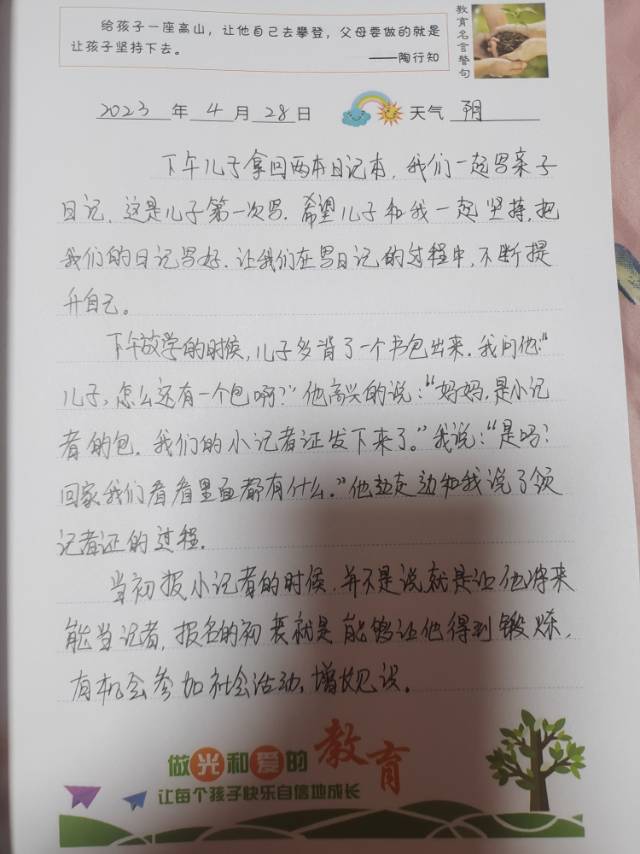 给孩子一座高山，让他自己去攀登，父母要做的就是
让孩子坚持下去。
——陶行知
教育名言警句
2023 年 4 月 28 日 天气 阴
下午儿子拿回两本日记本，我们一起写亲子
日记，这是儿子第一次写．希望儿子和我一起坚持，把
我们的日记写好．让我们在写日记的过程中，不断提
升自己。
下午放学的时候，儿子多背了一个书包出来．我问他：“
儿子，怎么还有一个包啊？”他高兴的说：“妈妈，是小记
者的包．我们的小记者证发下来了。”我说：“是吗？
回家我们看看里面都有什么。”他边走边和我说了领
记者证的过程．
当初报小记者的时候，并不是说就是让他将来
能当记者，报名的初衷就是能够让他得到锻炼，
有机会参加社会活动，增长见识。
做光和爱的教育
让每个孩子快乐自信地成长